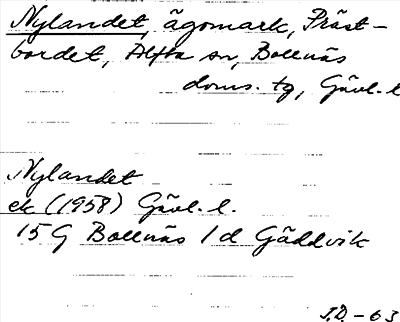 Nylandet, ägomark, Präst-
bordet, Alfta sn, Bollnäs
doms. tg, Gävl. l
Nylandet
ek (1958) Gävl. l.
15G Bollnäs 1d Gäddvik
J.D. - 63